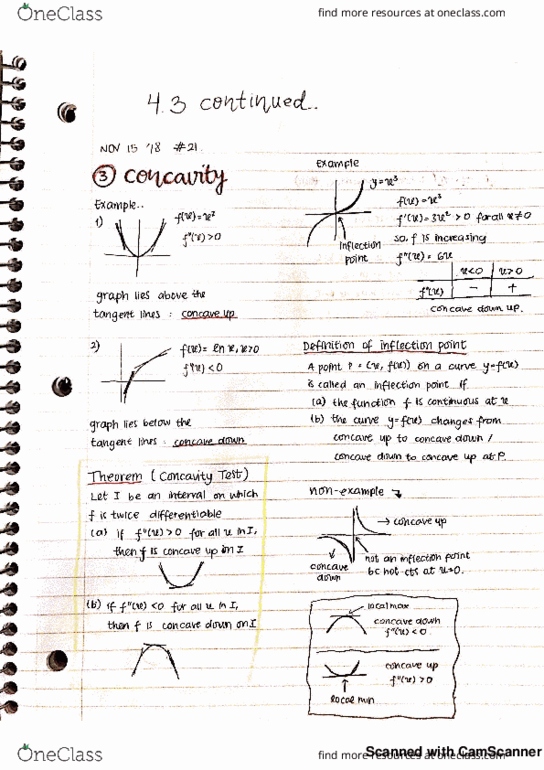 OneClass
find more resources at oneclass.com
4.3 continued..
NOV 15 '18 #21
③ concavity
Example..
1)
f(x)=x²
f"(x)>0
graph lies above the
tangent lines : concave up
2)
f(x)= ln x, x>0
f"(x)<0
graph lies below the
tangent lines : concave down
Theorem (Concavity Test)
Let I be an interval on which
f is twice differentiable
(a) if f"(x)>0 for all x in I,
then f is concave up in I
(b) if f"(x)<0 for all x in I,
then f is concave down on I
Example
y=x³
inflection
point
f(x)=x³
f'(x)=3x²>0 for all x≠0
so, f is increasing
f"(x)=6x
x<0 x>0
f"(x) − +
concave down up.
Definition of inflection point
A point P = (x, f(x)) on a curve y=f(x)
is called an inflection point if
(a) the function f is continuous at x
(b) the curve y=f(x) changes from
concave up to concave down /
concave down to concave up at P.
non-example
→ concave up
concave
down
not an inflection point
bc not cts at x=0.
local max
concave down
f"(x)<0
concave up
f"(x)>0
local min
OneClass
find more resources at oneclass.com
Scanned with CamScanner